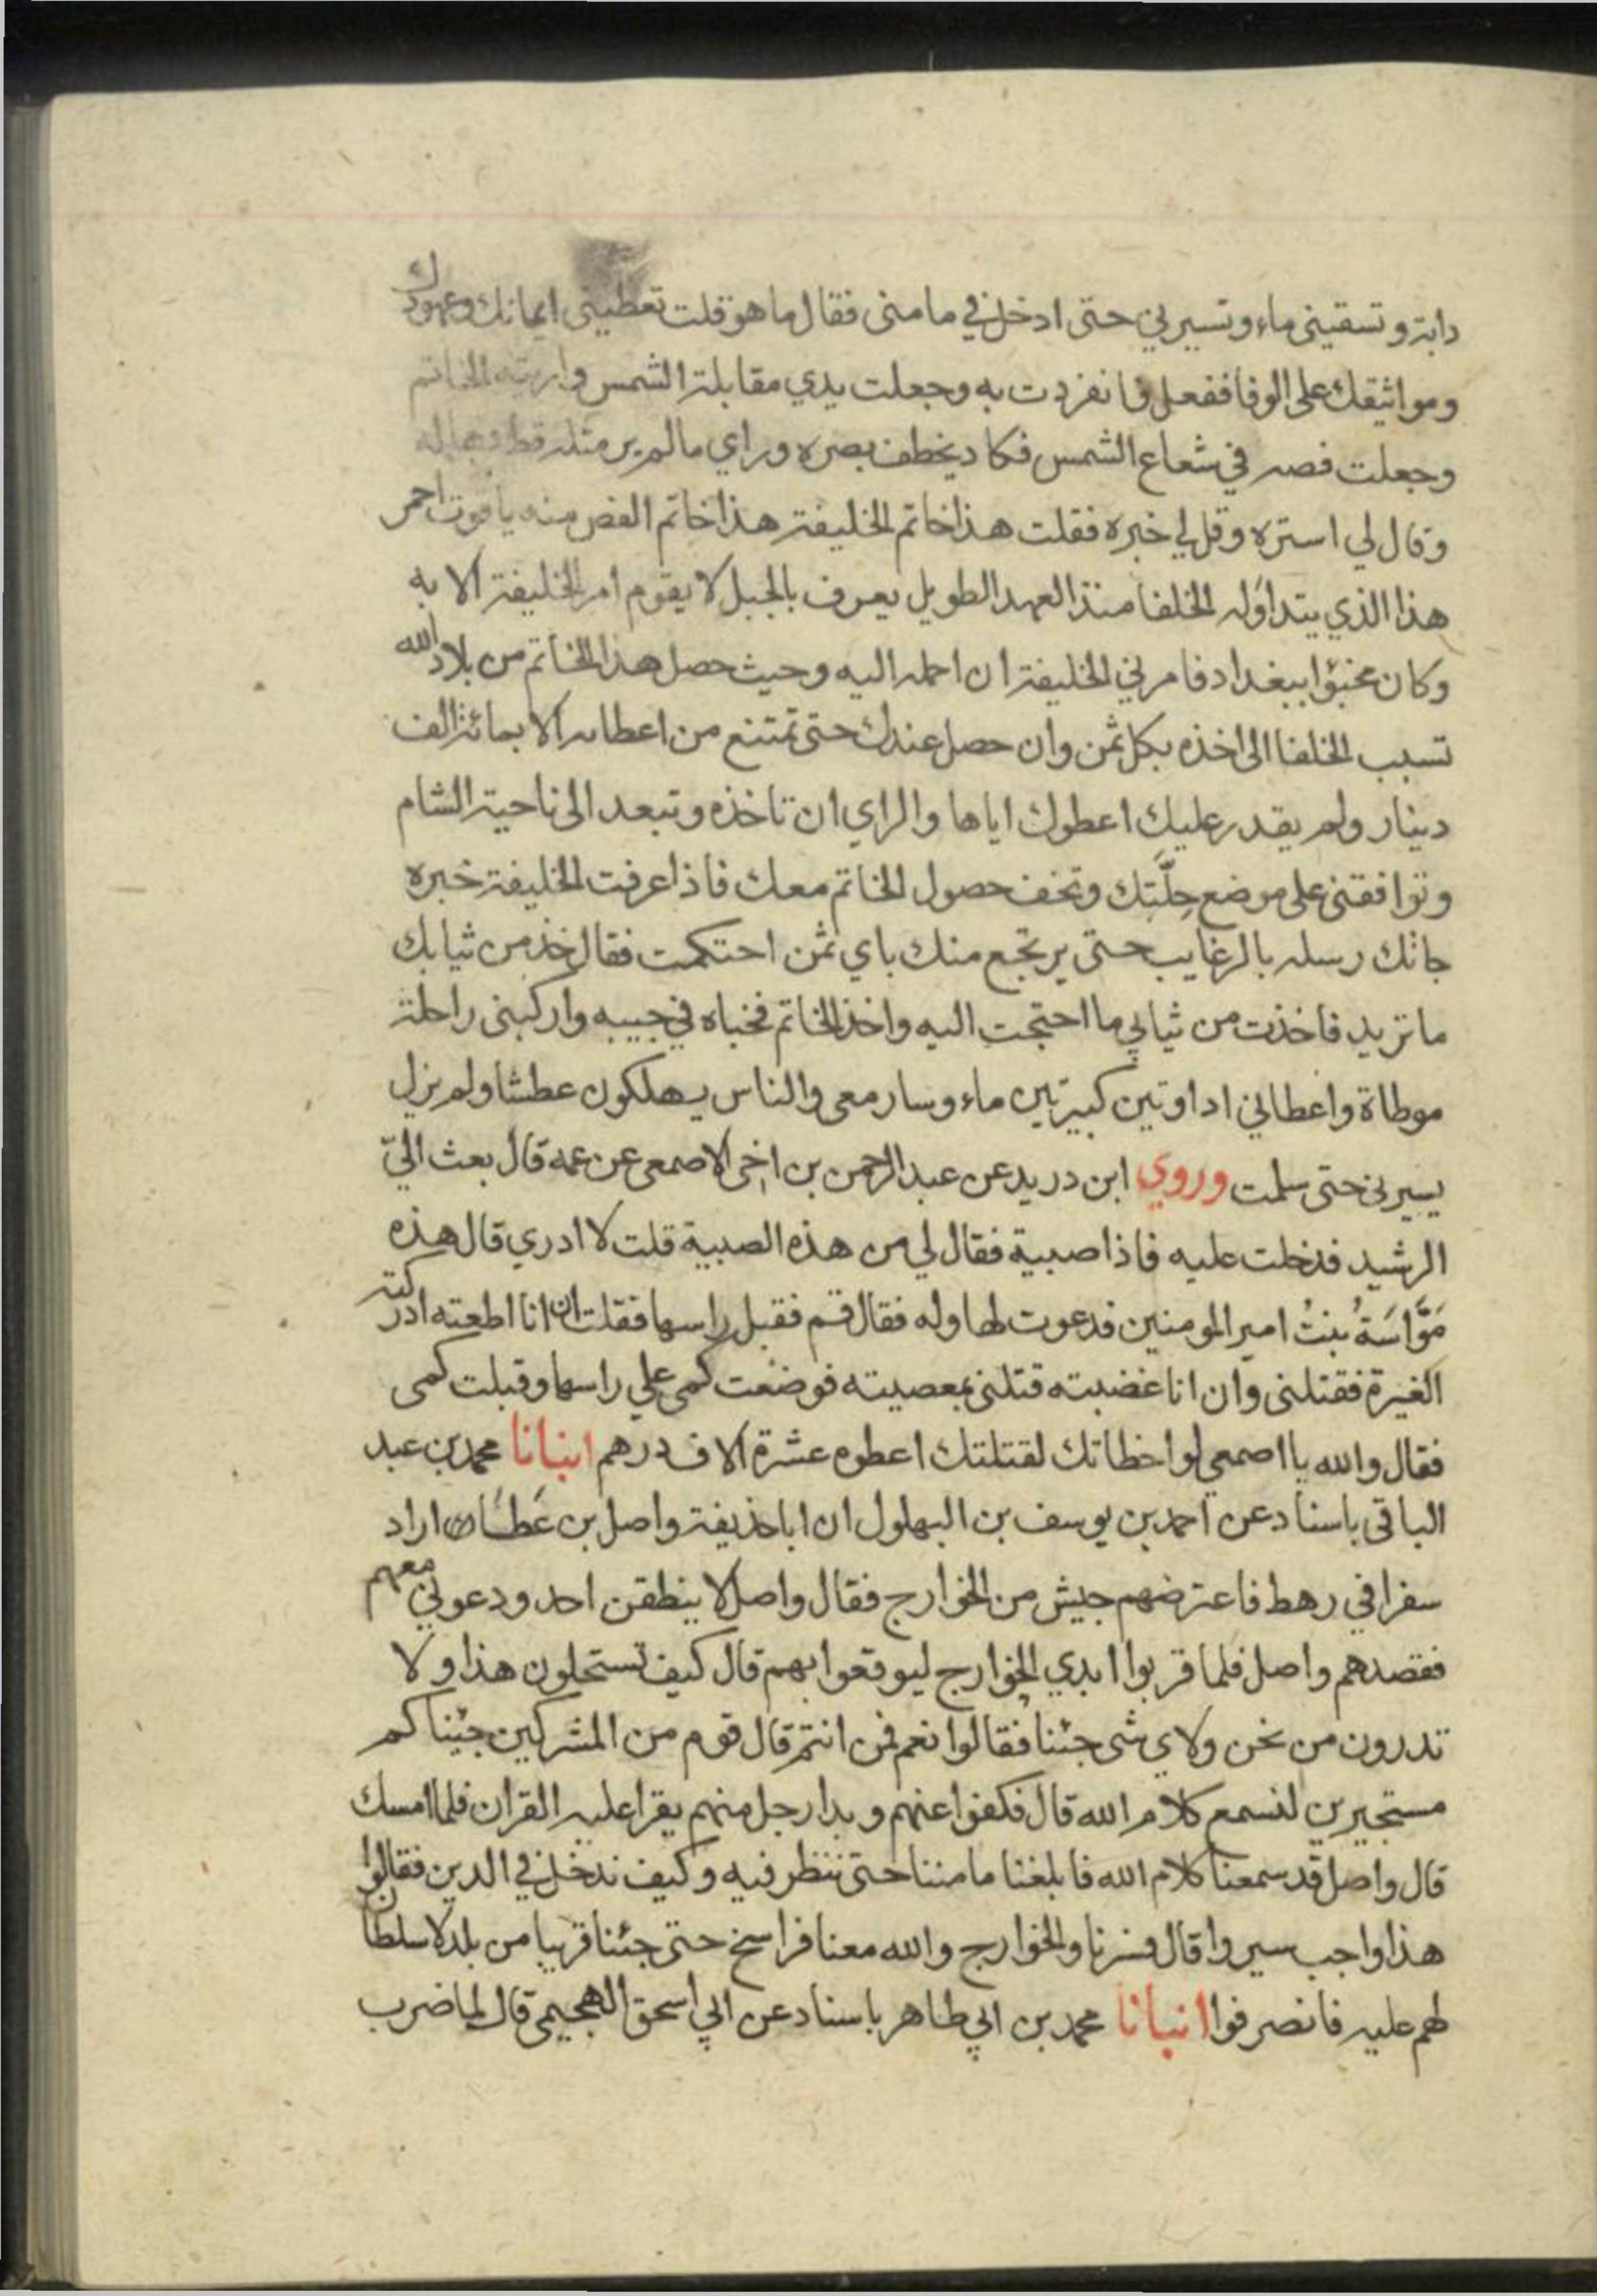 دابة وتسقيني ماء وتسير بي حتى ادخل في مامنى فقال ما هو قلت تعطينى ايمانك وعهودك
ومواثيقك على الوفا ففعل فانفردت به وجعلت يدي مقابلة الشمس واريته الخاتم
وجعلت فصه في شعاع الشمس فكاد يخطف بصره وراي مالم ير مثله قط
وقال لي استره وقل لي خبره فقلت هذا خاتم الخليفة هذا خاتم الفص منه ياقوت احمر
هذا الذي يتداوله الخلفا منذ العهد الطويل يعرف بالجبل لا يقوم امر الخليفة الا به
وكان مخبؤا ببغداد فامرني الخليفة ان احمله اليه وحيث حصل هذا الخاتم من بلاد الله
تسبب الخلفا الى اخذه بكل ثمن وان حصل عندك حتى تمتنع من اعطائه الا بمائة الف
دينار ولم يقدر عليك اعطوك اياها والراي ان تاخذه وتبعد الى ناحية الشام
وتوافقنى على موضع حِلَّتِك وتخف حصول الخاتم معك فاذا عرفت الخليفة خبره
جاتك رسله بالرغايب حتى يرتجع منك باي ثمن احتكمت فقال خذ من ثيابك
ما تريد فاخذت من ثيابي ما احتجت اليه واخذ الخاتم فخباه في جيبه واركبنى راحلة
موطاة واعطاني اداوتين كبيرتين ماء وسار معى والناس يهلكون عطشا ولم يزل
يسير بى حتى سلمت وروي ابن دريد عن عبد الرحمن بن اخى الاصمعى عن عمه قال بعث اليّ
الرشيد فدخلت عليه فاذا صبية فقال لي من هذه الصبية قلت لا ادري قال هذه
مَوَّاسَةُ بنتُ امير المومنين فدعوت لها وله فقال قم فقبل راسها فقلت ان انا اطعته ادركته
الغيرة فقتلنى وان انا غضبته قتلنى بمعصيته فوضعت كمى علي راسها وقبلت كمى
فقال والله يا اصمعي لو اخطاتك لقتلتك اعطوه عشرة الاف درهم انبانا محمد بن عبد
الباقى باسناد عن احمد بن يوسف بن البهلول ان ابا حذيفة واصل بن عَطَاء اراد
سفرا في رهط فاعترضهم جيش من الخوارج فقال واصل لا ينطقن احد ودعوني معهم
فقصدهم واصل فلما قربوا ابدي الخوارج ليوقعوا بهم قال كيف تستحلون هذا ولا
تدرون من نحن ولاي شى جئنا فقالوا نعم فمن انتم قال قوم من المشركين جيناكم
مستجيرين لنسمع كلام الله قال فكفوا عنهم وبدا رجل منهم يقرا عليه القران فلما امسك
قال واصل قد سمعنا كلام الله فابلغنا مامننا حتى ننظر فيه وكيف ندخل في الدين فقالوا
هذا واجب سيروا قال فسرنا والخوارج والله معنا فراسخ حتى جئنا قريبا من بلد لا سلطان
لهم عليه فانصرفوا انبانا محمد بن ابي طاهر باسناد عن ابي اسحق الهجيمى قال لما ضرب